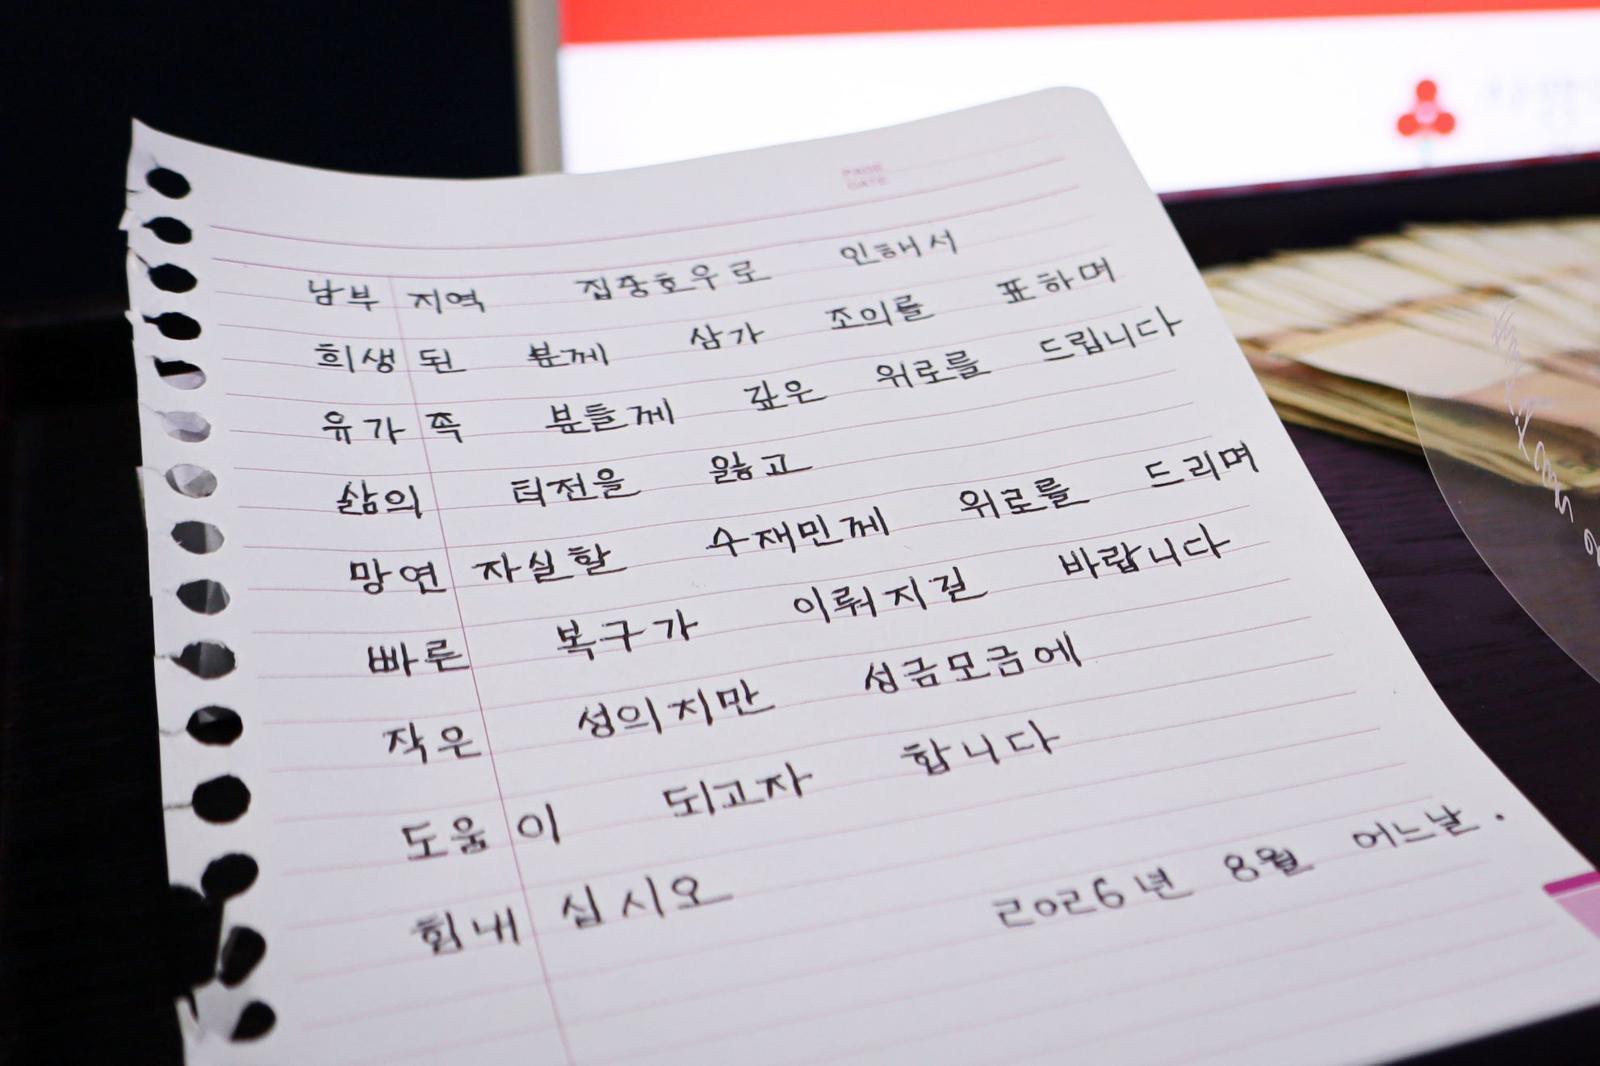 PAGE
DATE
남부 지역 집중호우로 인해서
희생된 분께 삼가 조의를 표하며
유가족 분들께 깊은 위로를 드립니다
삶의 터전을 잃고
망연자실할 수재민께 위로를 드리며
빠른 복구가 이뤄지길 바랍니다
작은 성의지만 성금모금에
도움이 되고자 합니다
힘내십시오
2026년 8월 어느날.